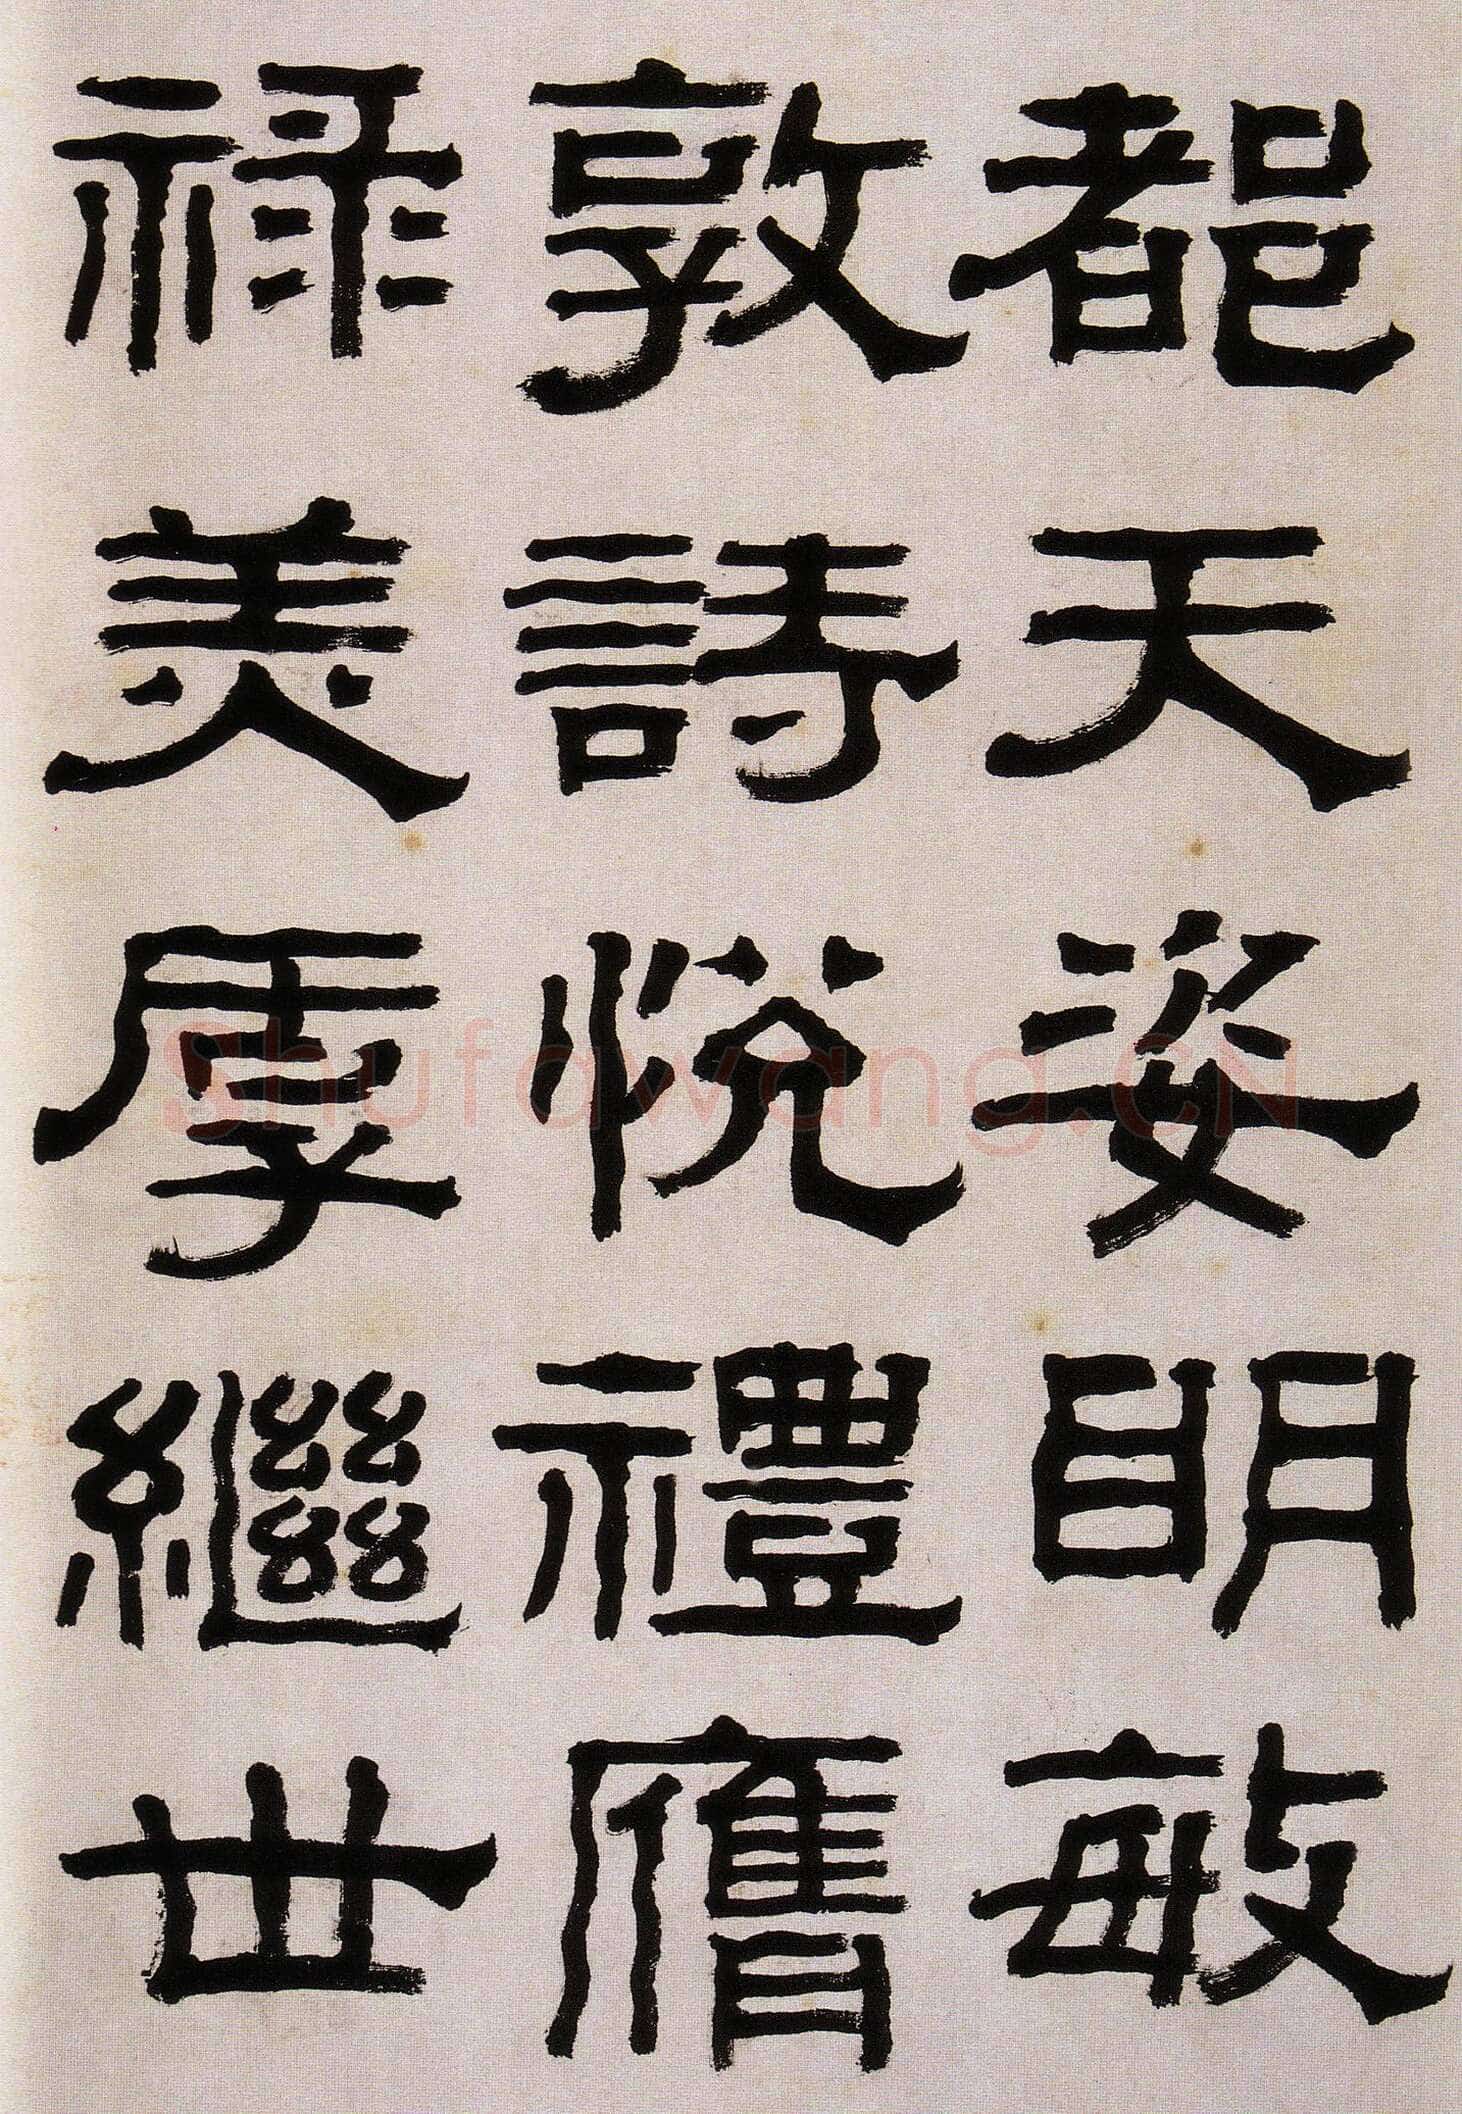 都天姿明敏
敦詩悦禮膺
祿美厚繼世
Shufawang.CN